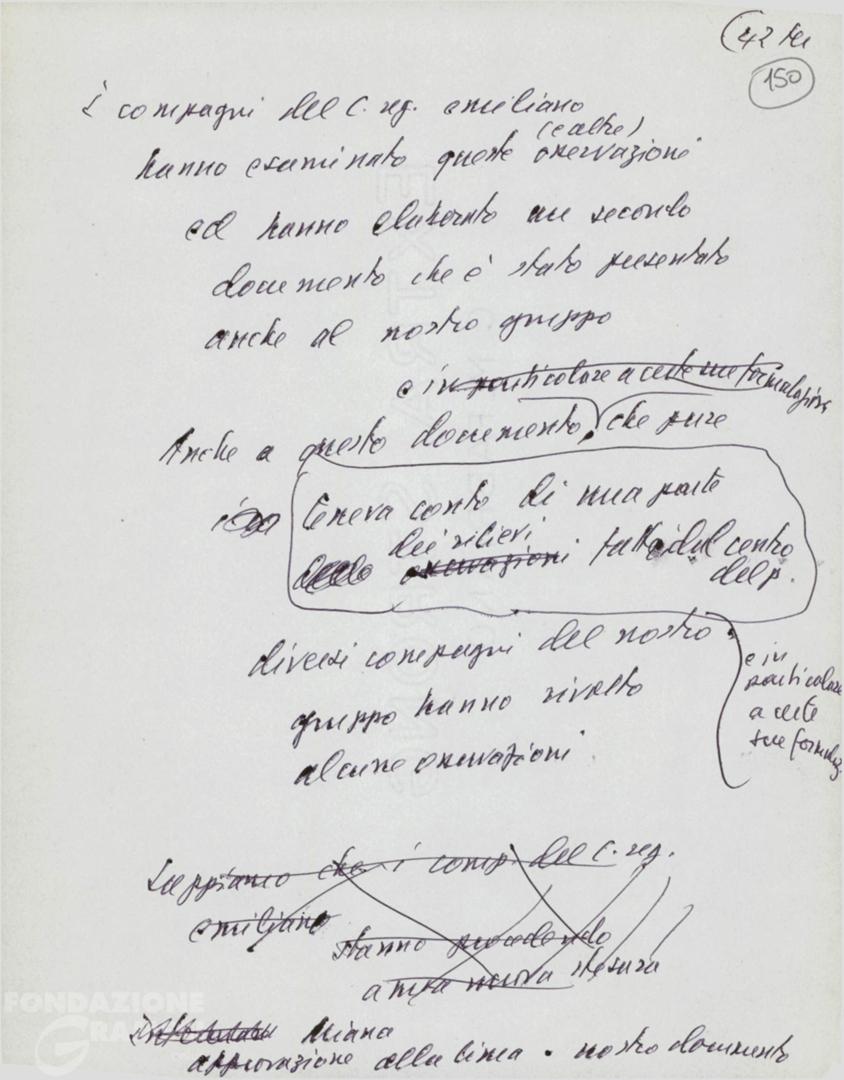 (42
150
I compagni del C. reg. emiliano
(e altre)
hanno esaminato queste osservazioni
ed hanno elaborato un secondo
documento che è stato presentato
anche al nostro gruppo
e in particolare a certe sue formulazioni
Anche a questo documento, che pure
teneva conto di una parte
dei rilievi
osservazioni fatti dal centro
del p.
diversi compagni del nostro
gruppo hanno rivolto
alcune osservazioni
e in
particolare
a certe
sue formulaz
Sappiamo che i comp. del C. reg.
emiliano
stanno procedendo
a una nuova stesura
approvazione alla linea . nostro documento
FONDAZIONE
GRAMSCI